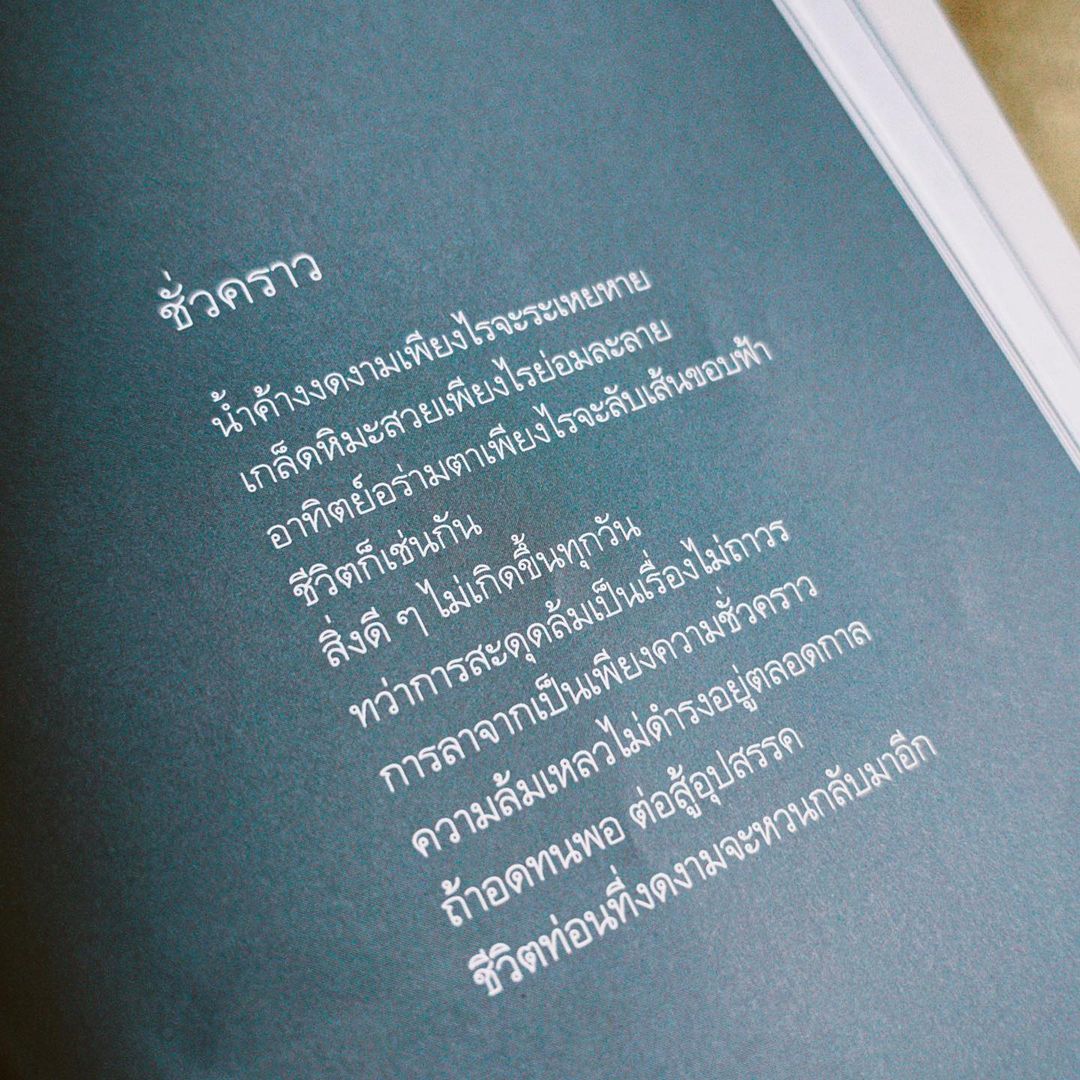 ชั่วคราว
น้ำค้างงดงามเพียงไรจะระเหยหาย
เกล็ดหิมะสวยเพียงไรย่อมละลาย
อาทิตย์อร่ามตาเพียงไรจะลับเส้นขอบฟ้า
ชีวิตก็เช่นกัน
สิ่งดี ๆ ไม่เกิดขึ้นทุกวัน
ทว่าการสะดุดล้มเป็นเรื่องไม่ถาวร
การลาจากเป็นเพียงความชั่วคราว
ความล้มเหลวไม่ดำรงอยู่ตลอดกาล
ถ้าอดทนพอ ต่อสู้อุปสรรค
ชีวิตท่อนที่งดงามจะหวนกลับมาอีก